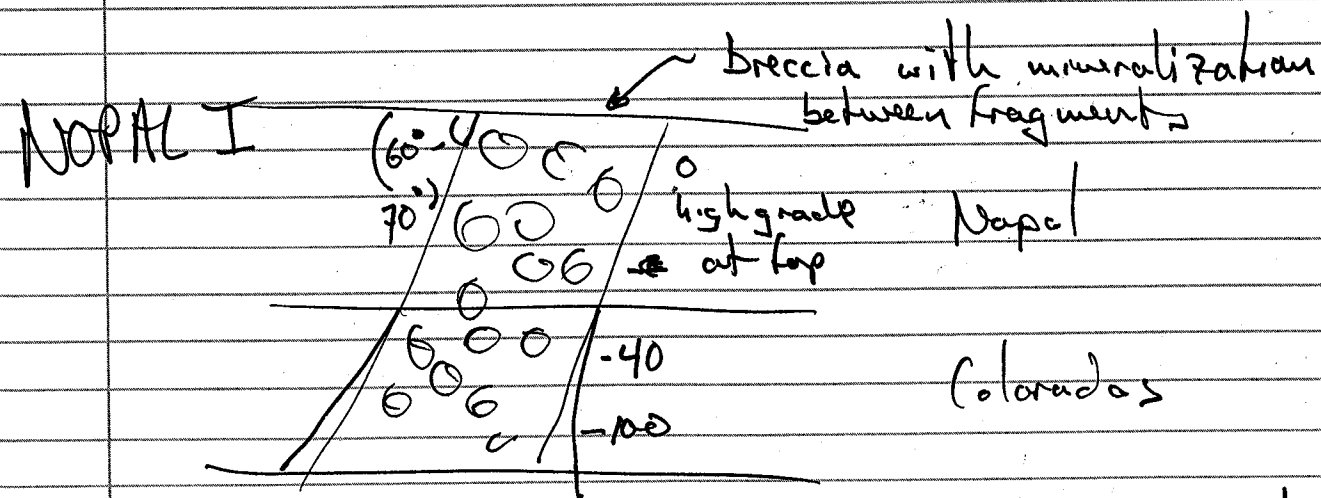 breccia with mineralization
between fragments
NOPAL I
(60°-
70°)
0
high grade
at top
Nopal
-40
Colorados
-100